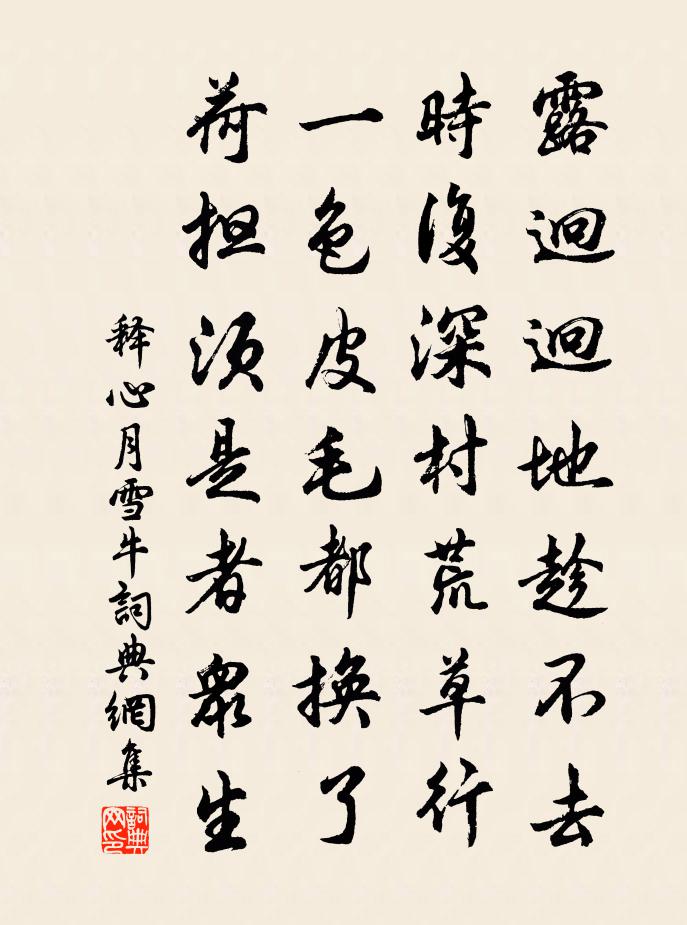 露迥迥地趁不去
時復深村荒草行
一色皮毛都換了
荷担須是者眾生
释心月雪牛詞典網集
詞典網印